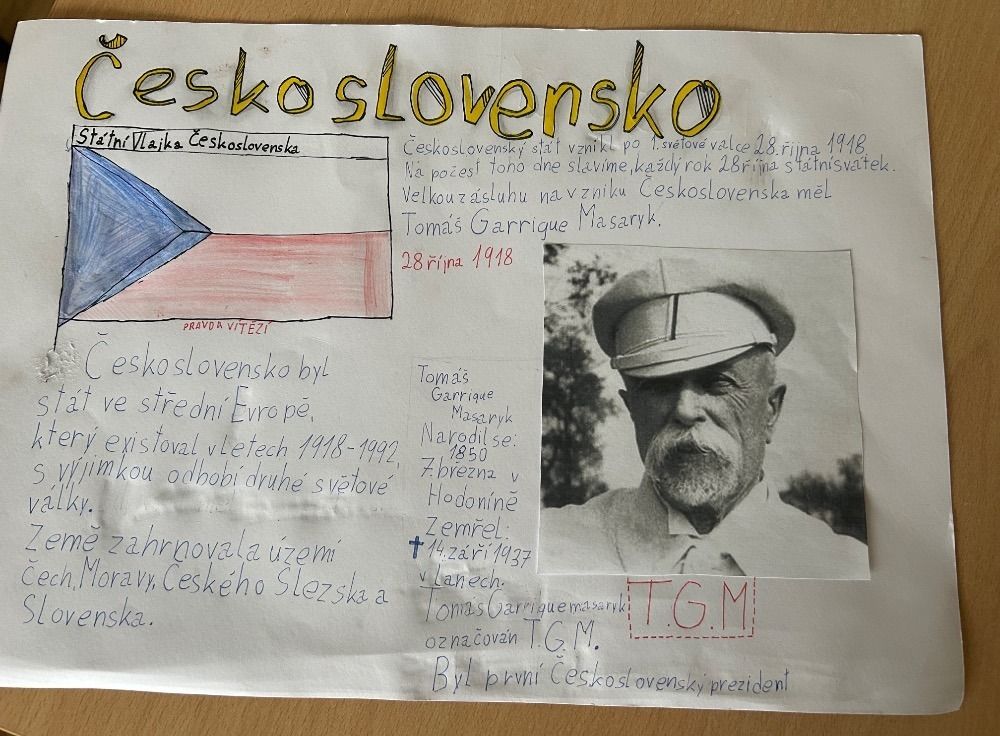 Československo
Státní Vlajka Československa
PRAVDA VÍTĚZÍ
Československý stát vznikl po 1. světové valce 28. října 1918.
Na počest toho dne slavíme, každý rok 28 října státní svatek.
Velkou zásluhu na vzniku Československa měl
Tomáš Garrigue Masaryk.
28 října 1918
Československo byl
stát ve střední Evropě,
který existoval v letech 1918-1992,
s vyjímkou odbobí druhé světové
války.
Země zahrnovala území
Čech, Moravy, Českého Slezska a
Slovenska.
Tomáš
Garrigue
Masaryk
Narodil se:
1850
7. března v
Hodoníně
Zemřel:
✝ 14. září 1937
v Lanech.
Tomás Garrigue masaryk
označován T.G.M.
T.G.M
Byl první Československý prezident